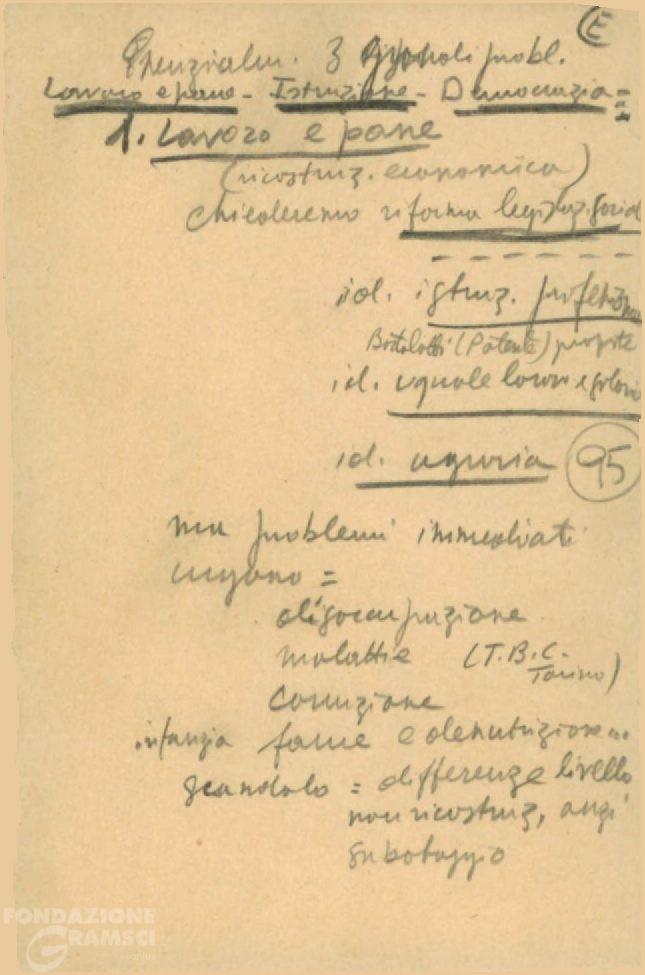 E
Essenzialm. 3 grandi probl.
Lavoro e pane - Istruzione - Democrazia =
1. Lavoro e pane
(ricostruz. economica)
Chiederemo riforma legislaz. social
id. istruz. profession
Bortolotti (Patente) proposte
id. uguale lavoro e salario
id. agraria 95
ma problemi immediati
urgono =
disoccupazione
malattie (T.B.C.
Torino)
Corruzione
infanzia fame e denutrizione ...
scandalo = differenze livello
non ricostruz, anzi
sabotaggio
FONDAZIONE
GRAMSCI
onlus